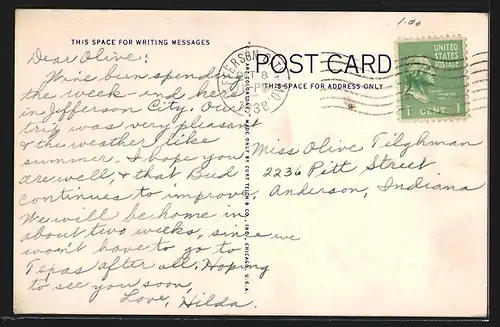 1.00
THIS SPACE FOR WRITING MESSAGES
Dear Olive:
We've been spending
the week-end here
in Jefferson City. Our
trip was very pleasant
& the weather like
summer. I hope you
are well, & that Bud
continues to improve.
We will be home in
about two weeks, since we
won't have to go to
Texas after all. Hoping
to see you soon,
Love, Hilda.
"C.T. ART-COLORTONE" MADE ONLY BY CURT TEICH & CO., INC., CHICAGO, U.S.A.
POST CARD
THIS SPACE FOR ADDRESS ONLY
8
PM
38
UNITED
STATES
POSTAGE
1 CENT 1
Miss Olive Tilghman
2236 Pitt Street
Anderson, Indiana